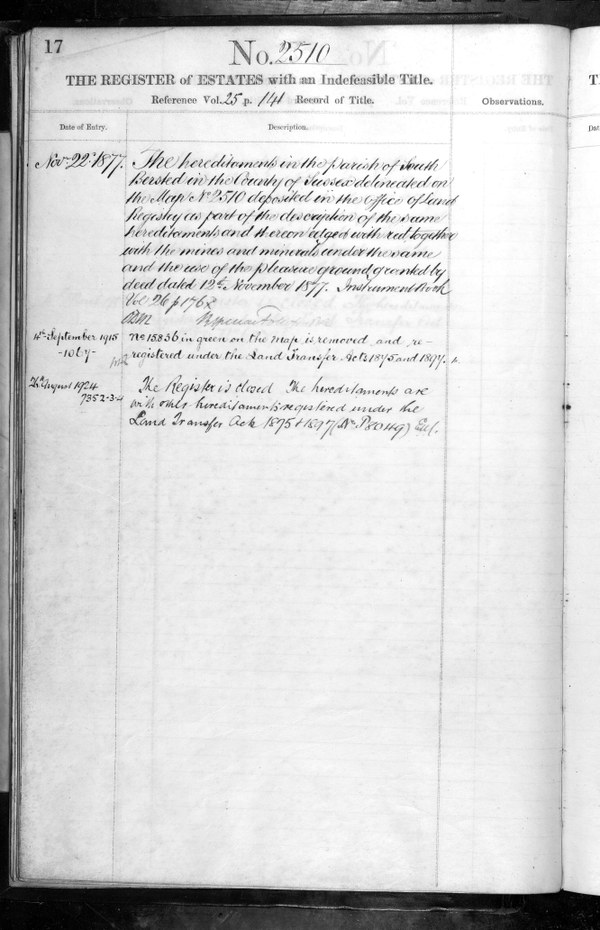 17
No. 2510
THE REGISTER of ESTATES with an Indefeasible Title.
Reference Vol. 25 p. 141 Record of Title.
Observations.
Date of Entry.
Description.
Novr 22d 1877.
The hereditaments in the parish of South
Bersted in the County of Sussex delineated on
the Map No 2510 deposited in the Office of Land
Registry as part of the description of the same
hereditaments and thereon edged with red together
with the mines and minerals under the same
and the use of the pleasure ground granted by
deed dated 12th November 1877. Instrument Book
Vol 26 p 176
4th September 1915
No 15836 in green on the map is removed and re-
registered under the Land Transfer Acts 1875 and 1897.
August 1924
7352-3-4
The Register is closed The hereditaments are
with other hereditaments registered under the
Land Transfer Acts 1875 & 1897 (No. P80419)